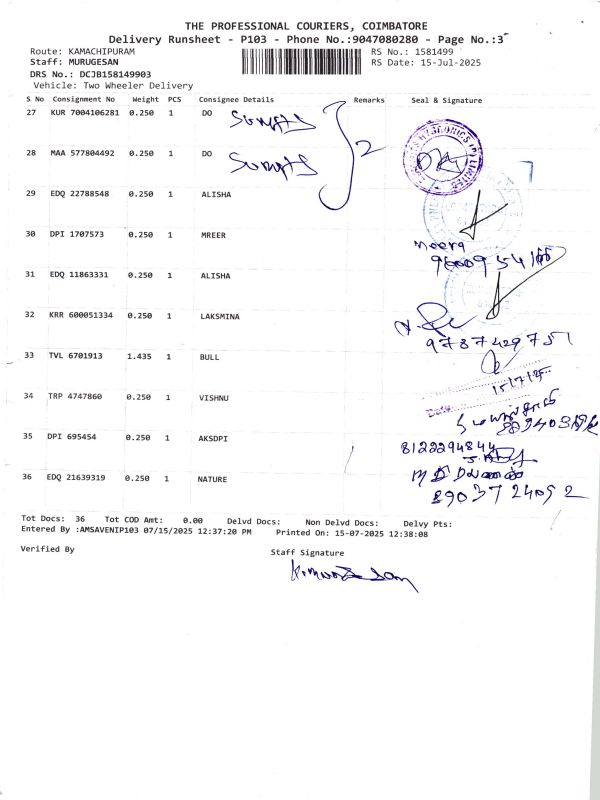 THE PROFESSIONAL COURIERS, COIMBATORE
Delivery Runsheet - P103 - Phone No.:9047080280 - Page No.:3
Route: KAMACHIPURAM RS No.: 1581499
Staff: MURUGESAN RS Date: 15-Jul-2025
DRS No.: DCJB158149903
Vehicle: Two Wheeler Delivery
S No Consignment No Weight PCS Consignee Details Remarks Seal & Signature
27 KUR 7004106281 0.250 1 DO
28 MAA 577804492 0.250 1 DO
2
29 EDQ 22788548 0.250 1 ALISHA
30 DPI 1707573 0.250 1 MREER
Meera
31 EDQ 11863331 0.250 1 ALISHA
32 KRR 600051334 0.250 1 LAKSMINA
9787429751
33 TVL 6701913 1.435 1 BULL
15/7/25
34 TRP 4747860 0.250 1 VISHNU
35 DPI 695454 0.250 1 AKSDPI
8122294844
36 EDQ 21639319 0.250 1 NATURE
8903724092
Tot Docs: 36 Tot COD Amt: 0.00 Delvd Docs: Non Delvd Docs: Delvy Pts:
Entered By :AMSAVENIP103 07/15/2025 12:37:20 PM Printed On: 15-07-2025 12:38:08
Verified By Staff Signature